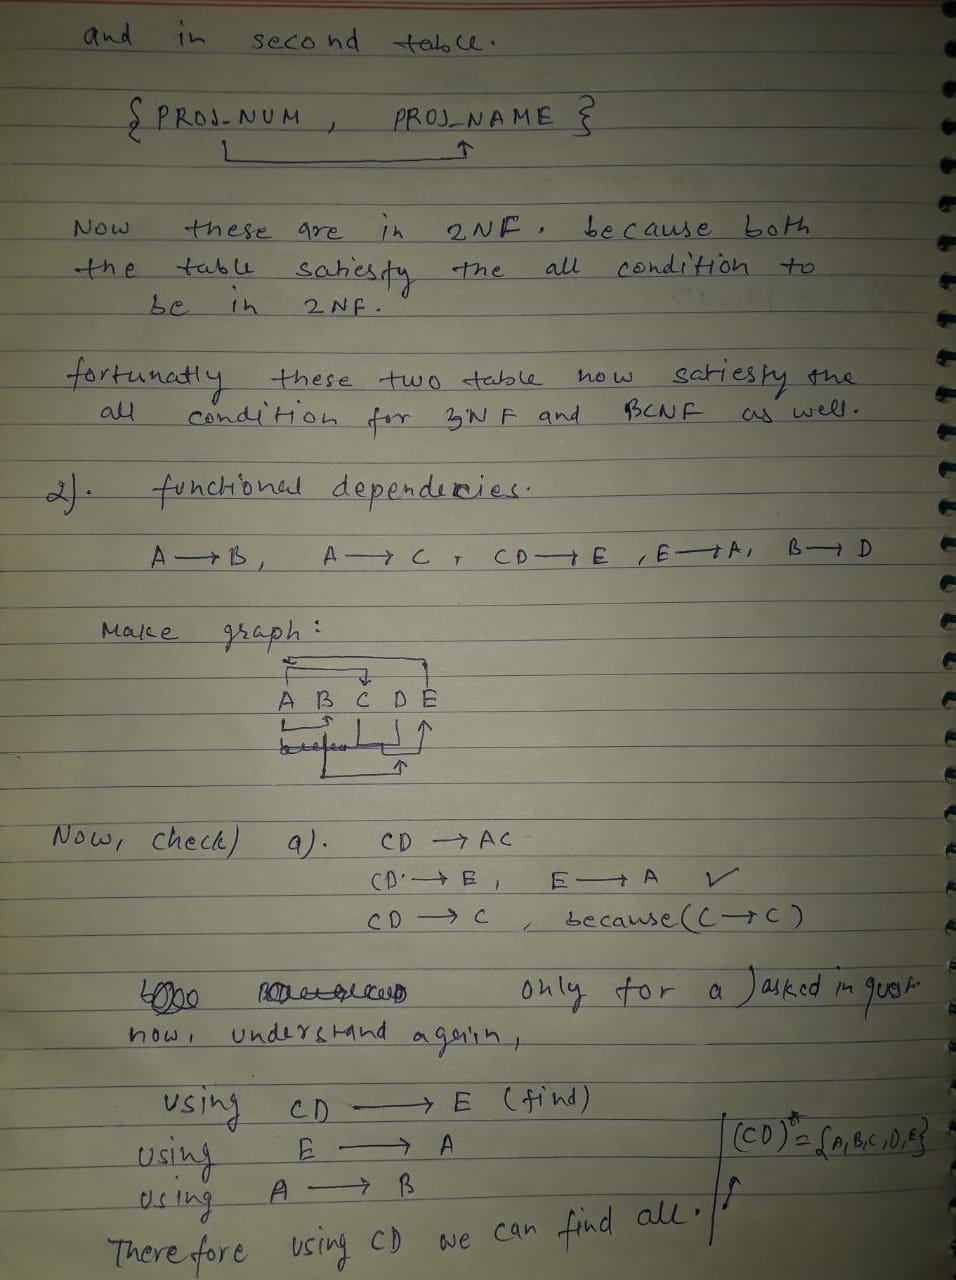 and in second table.
{ PROJ_NUM , PROJ_NAME }
Now these are in 2NF. because both
the table satiesfy the all condition to
be in 2NF.
fortunatly these two table now satiesfy the
all condition for 3NF and BCNF as well.
2). functional dependencies.
A → B, A → C, CD → E, E → A, B → D
Make graph:
A B C D E
Now, check) a). CD → AC
CD → E, E → A ✓
CD → C, because (C → C)
only for a) asked in
now, understand again,
using CD → E (find)
using E → A
using A → B
(CD)* = {A,B,C,D,E}
Therefore using CD we can find all.